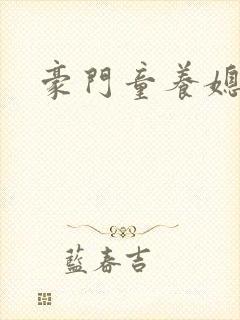 豪門童養媳
藍春吉